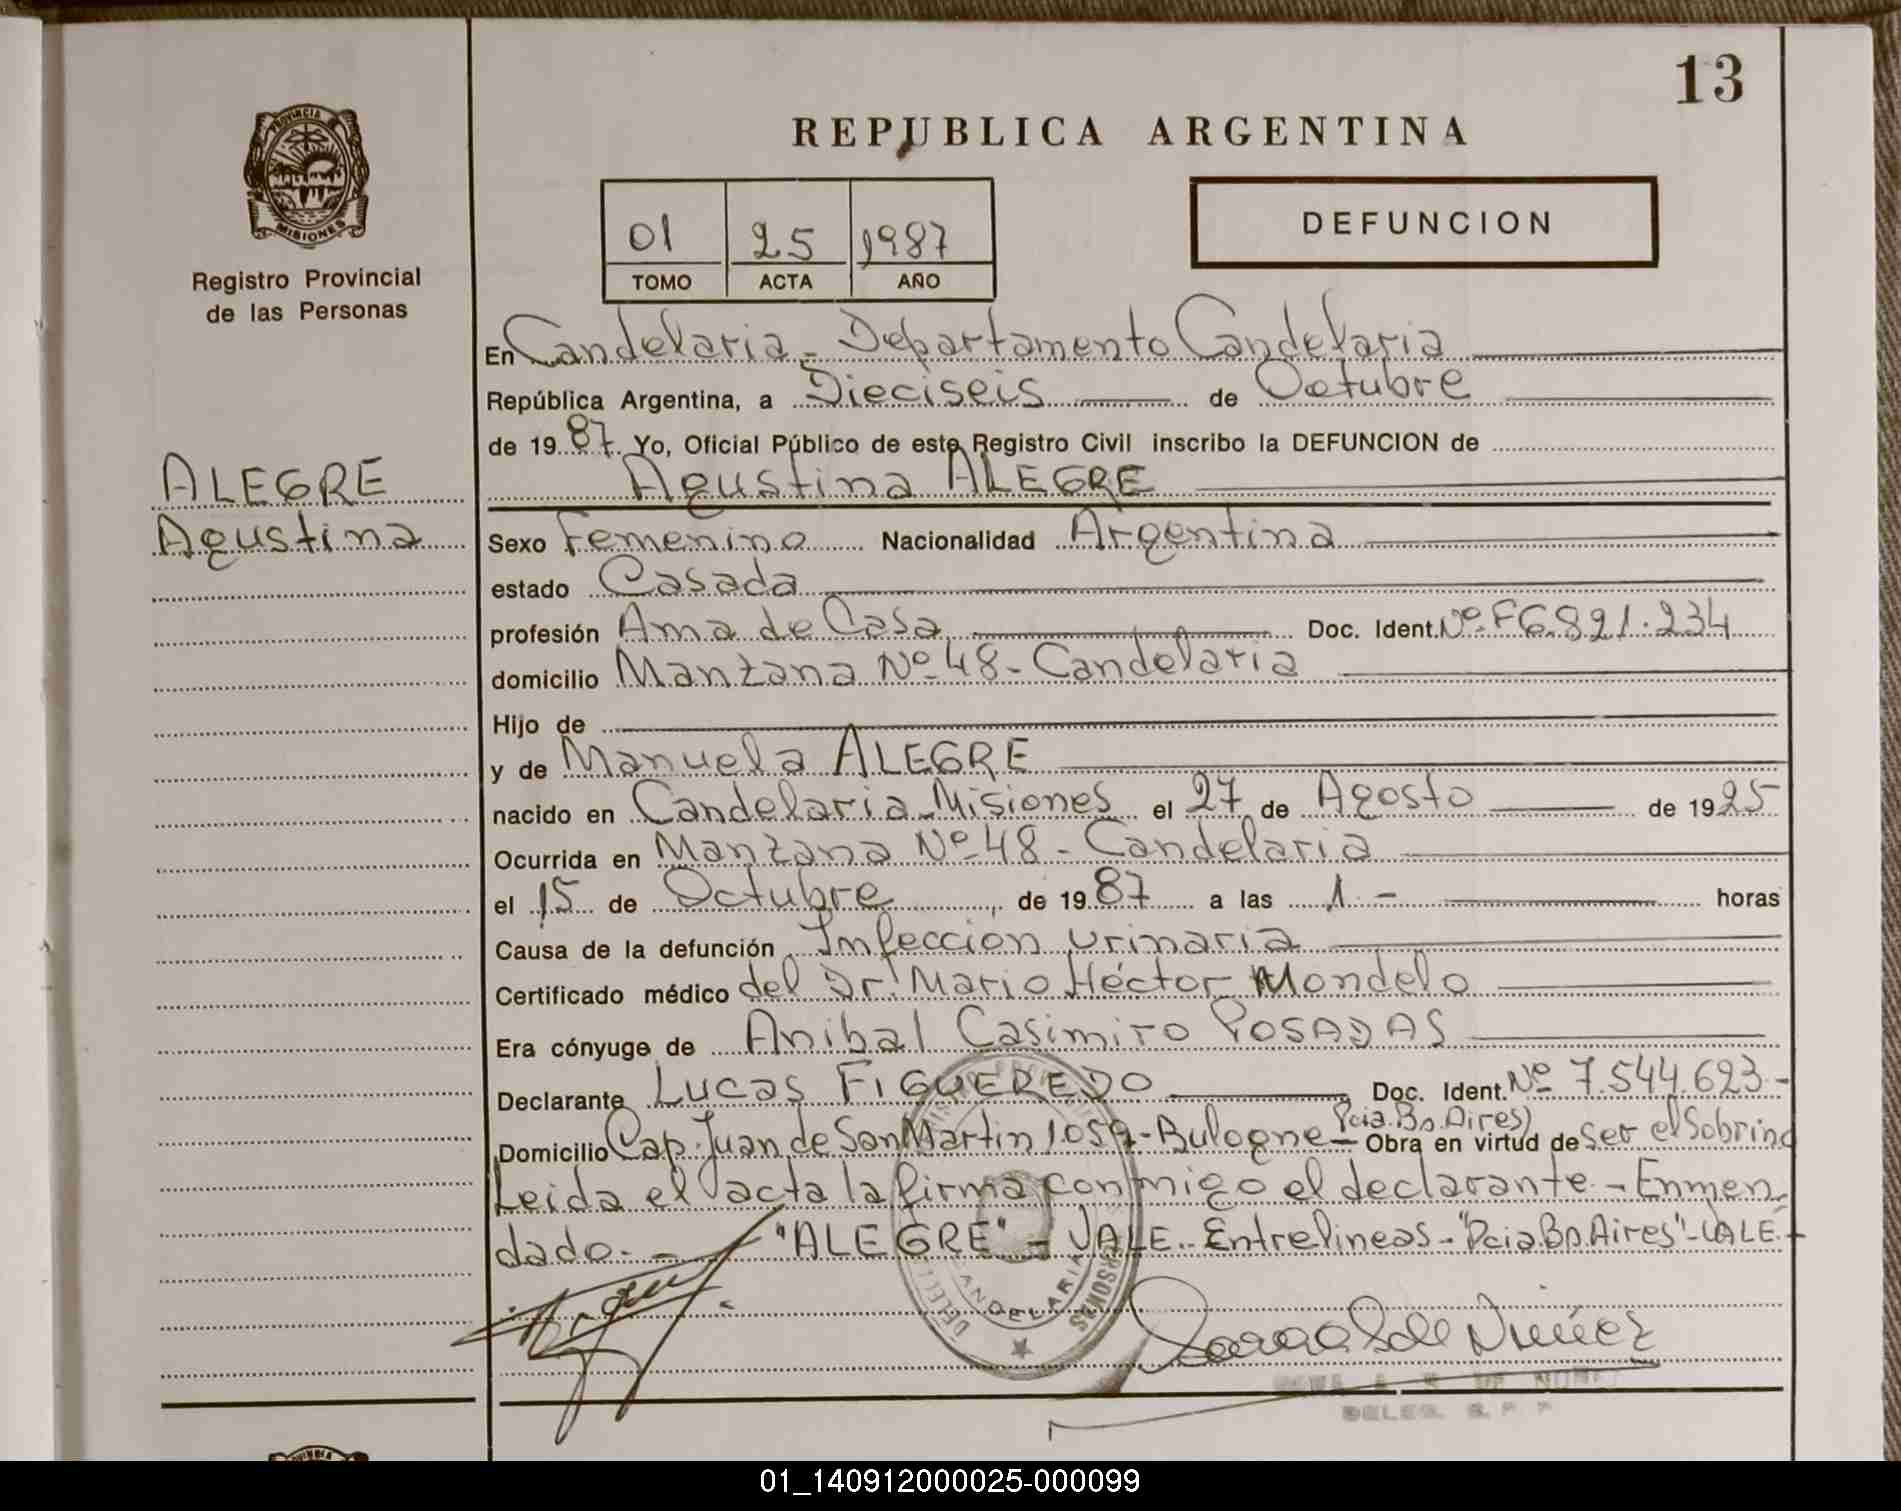 13
REPUBLICA ARGENTINA
PROVINCIA
MISIONES
Registro Provincial
de las Personas
01 25 1987
TOMO ACTA AÑO
DEFUNCION
En Candelaria - Departamento Candelaria
República Argentina, a Dieciseis de Octubre
de 1987 Yo, Oficial Público de este Registro Civil inscribo la DEFUNCION de
ALEGRE
Agustina
Agustina ALEGRE
Sexo Femenino Nacionalidad Argentina
estado Casada
profesión Ama de Casa Doc. Ident. Nº F6.821.234
domicilio Manzana Nº 48 - Candelaria
Hijo de
y de Manuela ALEGRE
nacido en Candelaria Misiones el 27 de Agosto de 1925
Ocurrida en Manzana Nº 48 - Candelaria
el 15 de Octubre de 1987 a las 1 - horas
Causa de la defunción Infeccion urinaria
Certificado médico del Dr. Mario Héctor Mondelo
Era cónyuge de Anibal Casimiro POSADAS
Declarante Lucas FIGUEREDO Doc. Ident. Nº 7.544.623 -
Pcia. Bs. Aires)
Domicilio Cap. Juan de San Martin 1.059 - Bulogne - Obra en virtud de ser el Sobrino
Leida el acta la firma conmigo el declarante - Enmen
dado. - "ALEGRE" - VALE. - Entrelineas - "Pcia Bs. Aires" - VALE -
CANDELARIA
de Nuñez
DELEG. R. P. P.
01_140912000025-000099